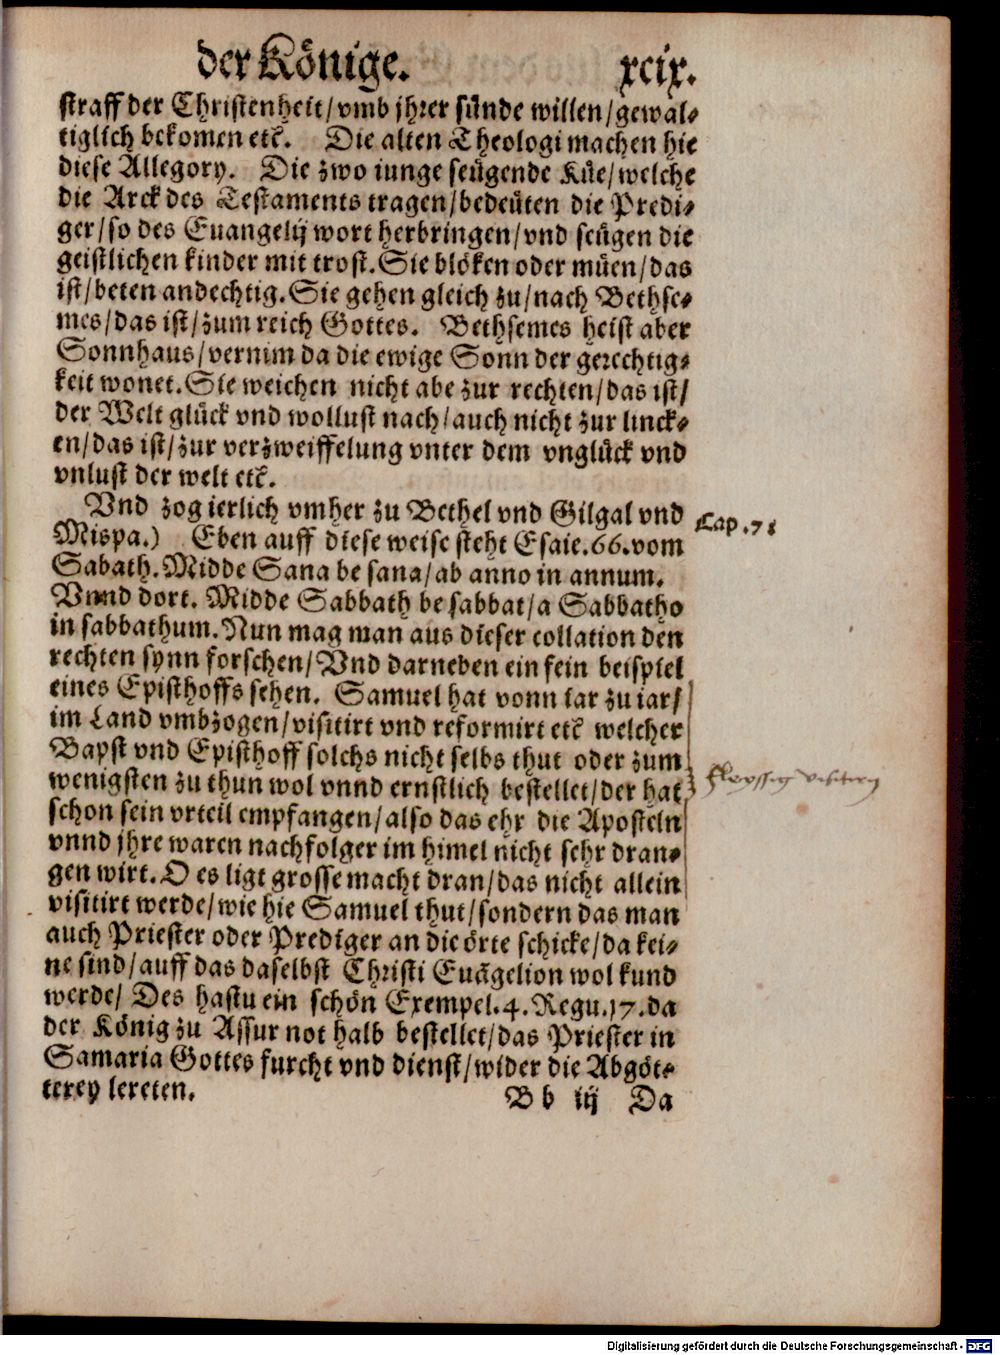 der Könige. xcix.
straff der Christenheit/vmb jhrer sünde willen/gewal⸗
tiglich bekomen etc. Die alten Theologi machen hie
diese Allegory. Die zwo iunge seügende Küe/welche
die Arck des Testaments tragen/bedeüten die Predi⸗
ger/so des Euangelij wort herbringen/vnd seügen die
geistlichen kinder mit trost. Sie blöken oder müen/das
ist/beten andechtig. Sie gehen gleich zu/nach Bethse⸗
mes/das ist/zum reich Gottes. Bethsemes heist aber
Sonnhaus/vernim da die ewige Sonn der gerechtig⸗
keit wonet. Sie weichen nicht abe zur rechten/das ist/
der Welt glück vnd wollust nach/auch nicht zur linck⸗
en/das ist/zur verzweiffelung vnter dem vnglück vnd
vnlust der welt etc.
Vnd zog ierlich vmher zu Bethel vnd Gilgal vnd
Cap. 7.
Mispa.) Eben auff diese weise steht Esaie. 66. vom
Sabath. Midde Sana be sana/ab anno in annum.
Vnnd dort. Midde Sabbath be sabbat/a Sabbatho
in sabbathum. Nun mag man aus dieser collation den
rechten synn forschen/Vnd darneben ein fein beispiel
eines Episthoffs sehen. Samuel hat vonn iar zu iar/
im Land vmbzogen/visitirt vnd reformirt etc welcher
Bapst vnd Episthoff solchs nicht selbs thut oder zum
wenigsten zu thun wol vnnd ernstlich bestellet/der hat
schon sein vrteil empfangen/also das ehr die Aposteln
vnnd jhre waren nachfolger im himel nicht sehr dran⸗
gen wirt. O es ligt grosse macht dran/das nicht allein
visitirt werde/wie hie Samuel thut/sondern das man
auch Priester oder Prediger an die örte schicke/da kei⸗
ne sind/auff das daselbst Christi Euãgelion wol kund
werde/ Des hastu ein schön Exempel. 4. Regu. 17. da
der König zu Assur not halb bestellet/das Priester in
Samaria Gottes furcht vnd dienst/wider die Abgöt⸗
terey lereten.
B b iij Da
Digitalisierung gefördert durch die Deutsche Forschungsgemeinschaft - DFG